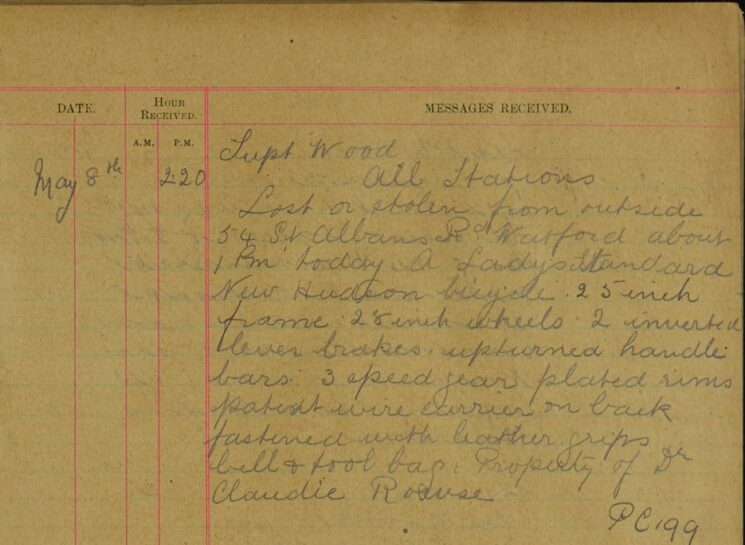 DATE. HOUR RECEIVED. MESSAGES RECEIVED.
A.M. P.M.
Supt Wood
May 8th 2.20 All Stations
Lost or stolen from outside
54 St Albans Rd Watford about
1 Pm today. A Ladys Standard
New Hudson bicycle 25 inch
frame 28 inch wheels 2 inverted
lever brakes upturned handle
bars 3 speed gear plated rims
patent wire carrier on back
fastened with leather grips
bell & tool bag. Property of Dr
Claudie
PC 199